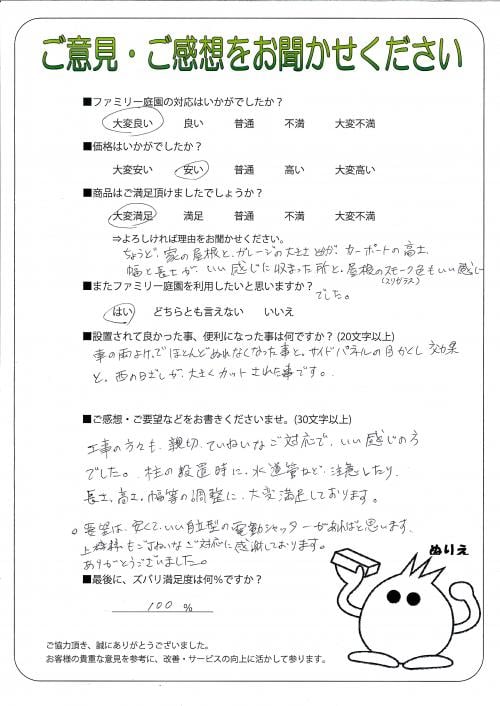 ご意見・ご感想をお聞かせください
■ファミリー庭園の対応はいかがでしたか？
大変良い 良い 普通 不満 大変不満
■価格はいかがでしたか？
大変安い 安い 普通 高い 大変高い
■商品はご満足頂けましたでしょうか？
大変満足 満足 普通 不満 大変不満
⇒よろしければ理由をお聞かせください。
ちょうど、家の屋根と、ガレージの大きさ カーポートの高さ
幅と長さが、いい感じに収まった所と、屋根のスモーク色もいい感じ
(スリガラス)
でした。
■またファミリー庭園を利用したいと思いますか？
はい どちらとも言えない いいえ
■設置されて良かった事、便利になった事は何ですか？(20文字以上)
車の雨よけでほとんどぬれなくなった事と、サイドパネルの目かくし効果
と、西の日ざしが、大きくカットされた事です。
■ご感想・ご要望などをお書きくださいませ。(30文字以上)
工事の方々も、親切、ていねいなご対応で、いい感じの方
でした。柱の設置時に、水道管など、注意したり、
長さ、高さ、幅等の調整に、大変満足しております。
○要望は、安くて、いい自立型の電動シャッターがあればと思います。
上 様もごていねいなご対応に感謝しております。
ありがとうございました。
■最後に、ズバリ満足度は何%ですか？
100 %
ぬりえ
ご協力頂き、誠にありがとうございました。
お客様の貴重な意見を参考に、改善・サービスの向上に活かして参ります。